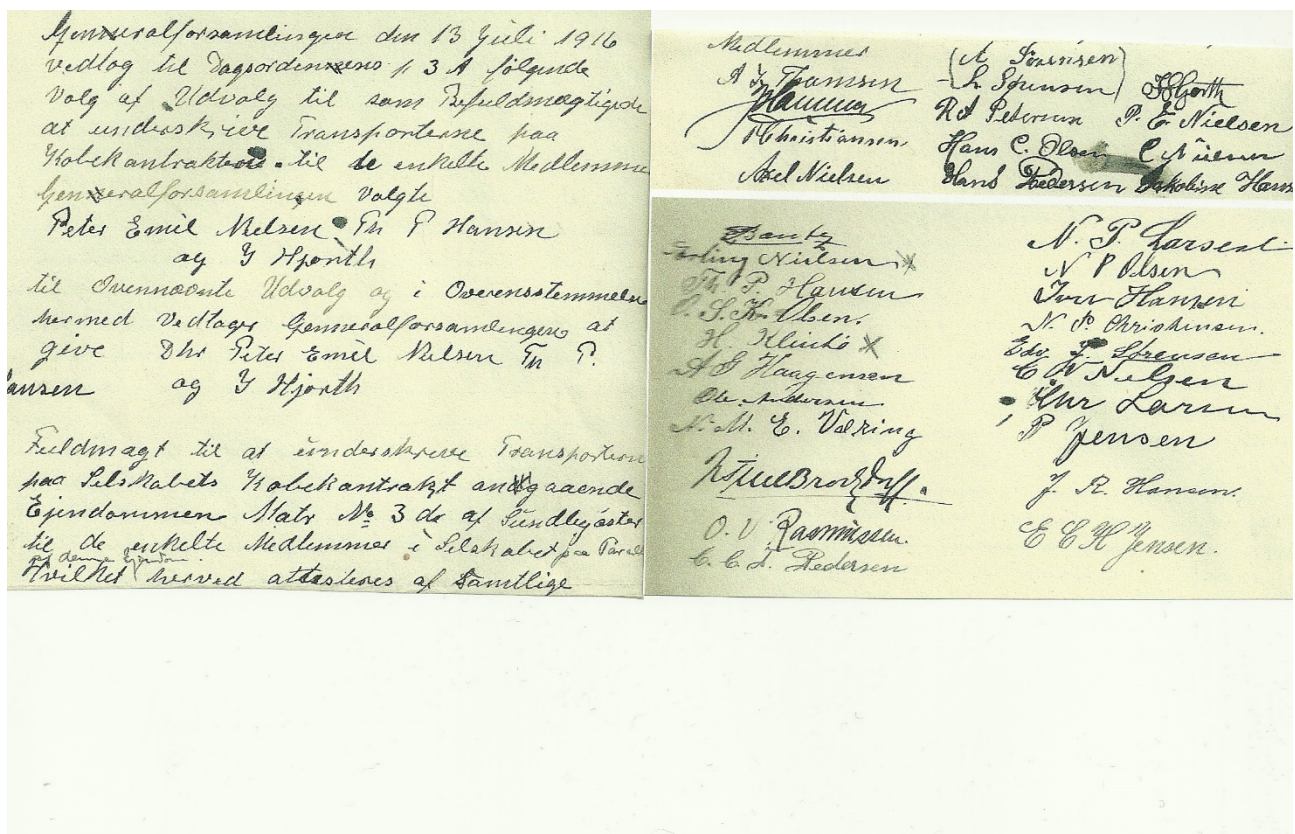 Genneralforsamlingen den 13 Juli 1916
vedtog til Dagsordennens p 3 A følgende
Valg af Udvalg til som Befuldmægtigede
at underskrive Transporterne paa
Købekontrakten til de enkelte Medlemme
Genneralforsamlingen valgte
Peter Emil Nielsen Th P Hansen
og Y Hjorth
til Ovennævnte Udvalg og i Overensstemmelse
hermed Vedtager Genneralforsamlingen at
give Dhr Peter Emil Nielsen Th P.
ansen og Y Hjorth
Fuldmagt til at underskrive Transportern
paa Selskabets Købekontrakt angaaende
Ejendommen Matr № 3 de af Sundbyøster
til de enkelte Medlemmer i Selskabet paa
af denne Ejendom.
Hvilket herved attesteres af Samtlige
Medlemmer
(A Sørensen)
A Thomsen
L Sørensen
Hjorth
Hansen
Rd Petersen
P. E Nielsen
Christiansen
Hans C. Olsen
C Nielsen
Axel Nielsen
Hans Pedersen
Jakobine Hans
Nielsen x
Th P. Hansen
C. S. K. Olsen.
H. Klintø x
A G Haagensen
Ole Andersen
N. M. E. Væring
O. V. Rasmussen.
C. C. L. Pedersen
N. P. Larsen
N P Olsen
Iver Hansen
N. P. Christensen.
Edv. L. Sørensen
C. V. Nielsen
Chr Larsen
P Jensen
J. R. Hansen.
E C H Jensen.